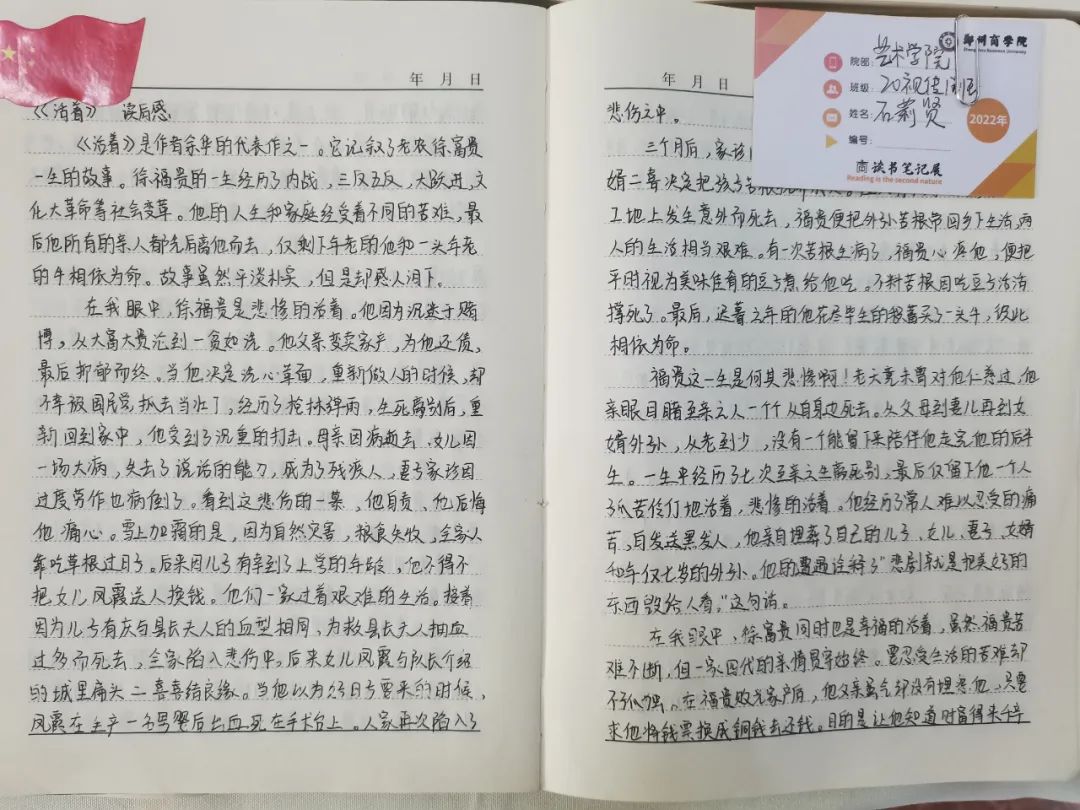 年 月 日
《活着》 读后感
《活着》是作者余华的代表作之一。它记叙了老农徐富贵
一生的故事。徐福贵的一生经历了内战，三反五反，大跃进，文
化大革命等社会变革。他的人生和家庭经受着不同的苦难，最
后他所有的亲人都先后离他而去，仅剩下年老的他和一头年老
的牛相依为命。故事虽然平淡朴实，但是却感人泪下。
在我眼中，徐福贵是悲惨的活着。他因为沉迷于赌
博，从大富大贵沦到一贫如洗。他父亲变卖家产，为他还债，
最后抑郁而终。当他决定洗心革面，重新做人的时候，却
不幸被国民党抓去当壮丁，经历了枪林弹雨，生死离别后，重
新回到家中，他受到了沉重的打击。母亲因病逝去、女儿因
一场大病，失去了说话的能力，成为了残疾人，妻子家珍因
过度劳作也病倒了。看到这悲伤的一幕，他自责、他后悔
他痛心。雪上加霜的是，因为自然灾害，粮食失收，全家人
靠吃草根过日子。后来因儿子有幸到了上学的年龄，他不得不
把女儿凤霞送人换钱。他们一家过着艰难的生活。接着
因为儿子有庆与县长夫人的血型相同，为救县长夫人抽血
过多而死去，全家陷入悲伤中。后来女儿凤霞与队长介绍
的城里偏头二喜喜结良缘。当他以为好日子要来的时候，
凤霞在生产一名男婴后出血死在手术台上。人家再次陷入了
年 月 日
悲伤之中。
三个月后，家珍
婿二喜决定把孩子苦根
工地上发生意外而死去，福贵便把外孙苦根带回乡下生活，两
人的生活相当艰难。有一次苦根生病了，福贵心疼他，便把
平时视为美味佳肴的豆子煮给他吃。不料苦根因吃豆子活活
撑死了。最后，迟暮之年的他花尽毕生的积蓄买了一头牛，彼此
相依为命。
福贵这一生是何其悲惨啊！老天竟未曾对他仁慈过，他
亲眼目睹至亲之人一个个从自身边死去。从父母到妻儿再到女
婿外孙，从老到少，没有一个能留下来陪伴他走完他的后半
生。一生中经历了七次至亲之生离死别，最后仅留下他一个人
孤苦伶仃地活着，悲惨的活着。他经历了常人难以忍受的痛
苦，白发送黑发人，他亲自埋葬了自己的儿子、女儿、妻子、女婿
和年仅七岁的外孙。他的遭遇诠释了“悲剧就是把美好的
东西毁给人看。”这句话。
在我眼中，徐富贵同时也是幸福的活着，虽然福贵苦
难不断，但一家四代的亲情贯穿始终。要忍受生活的苦难却
不孤独。在福贵败光家产后，他父亲虽气却没有埋怨他，只要
求他将钱票换成铜钱去还钱。目的是让他知道财富得来千辛
郑州商学院
院部：艺术学院
班级：20视传
姓名：石莉贤
编号：
2022年
商读书笔记展
Reading is the second nature